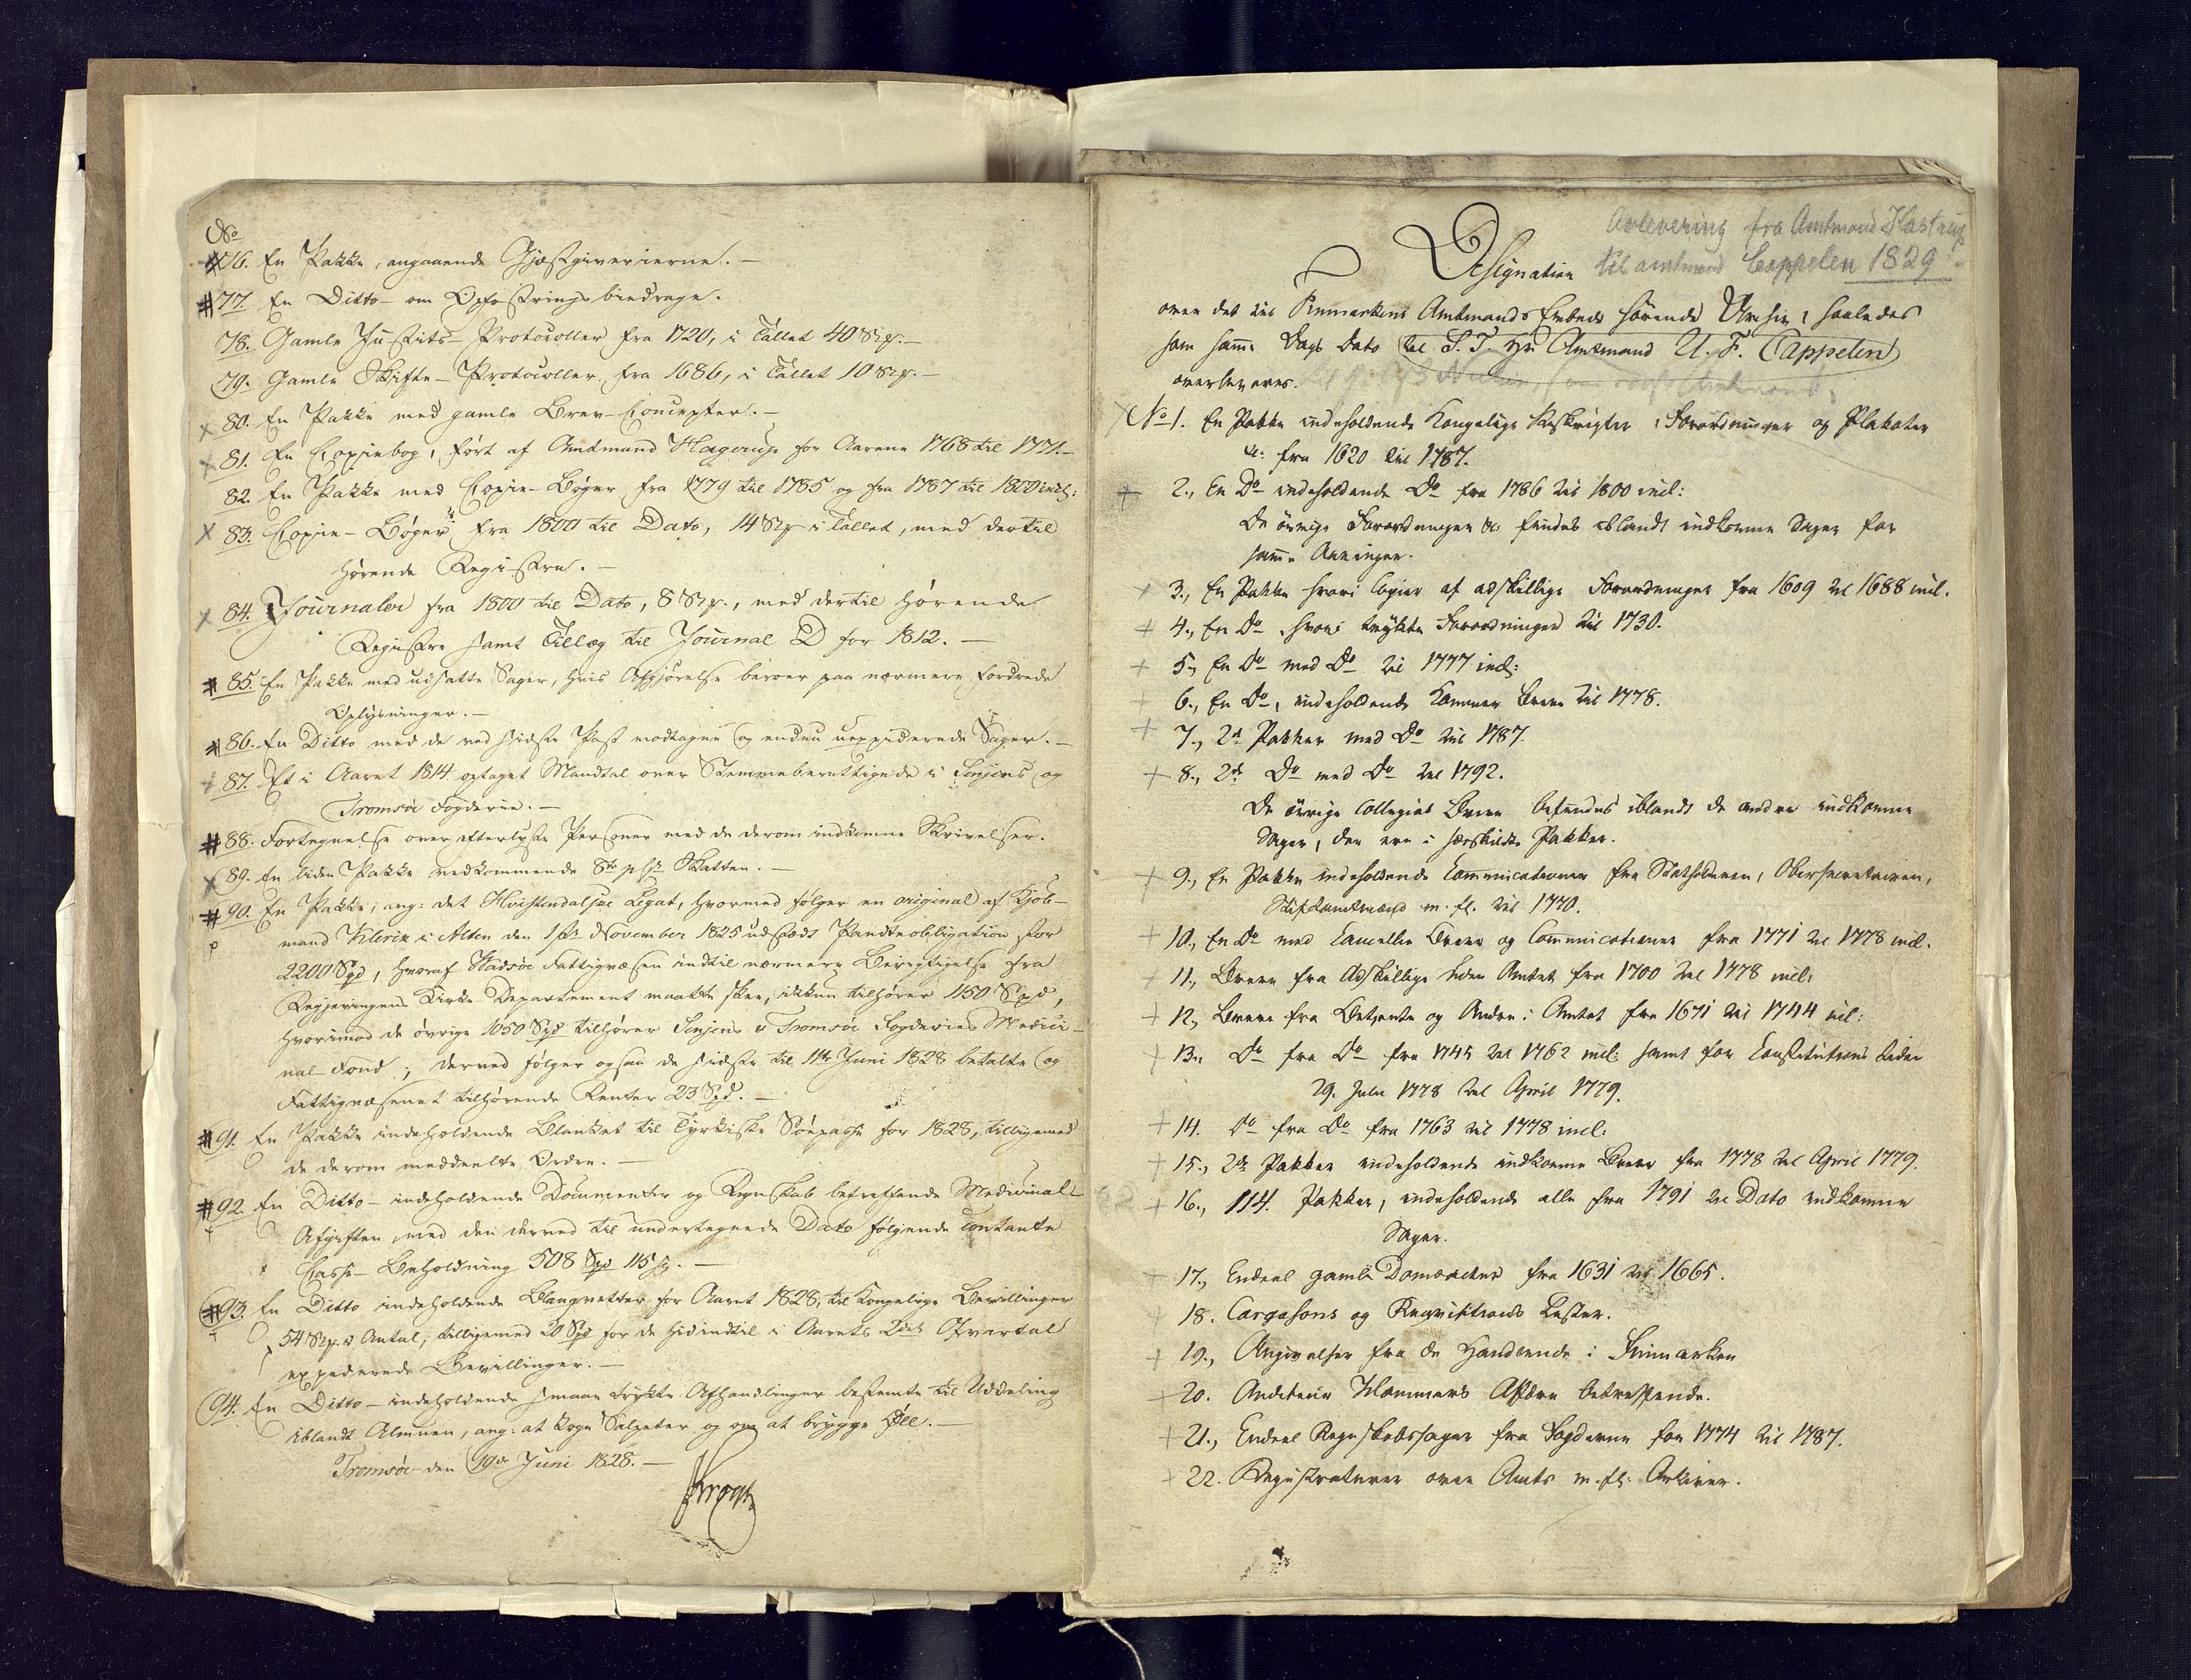 No
76. En Pakke, angaaende Gjæstgiverierne. —
77. En Ditto — om Opfostringsbiedrage.
78. Gamle Justits-Protocoller fra 1720, i Tallet 40 Stkr. —
79. Gamle Skifte-Protocoller fra 1686, i Tallet 10 Stkr. —
80. En Pakke med gamle Brev-Concepter. —
81. En Copiebog, ført af Amtmand Hagerup for Aarene 1768 til 1771. —
82. En Pakke med Copie-Bøger fra 1779 til 1785 og fra 1787 til 1800 incl:
83. Copie-Bøger fra 1800 til Dato, 14 Stkr i Tallet, med dertil
hørende Registre. —
84. Journaler fra 1800 til Dato, 8 Stkr., med dertil hørende
Registre samt Tillæg til Journal D for 1812. —
85. En Pakke med udsatte Sager, hvis Afgjørelse beroer paa nærmere fordrede
Oplysninger. —
86. En Ditto med de ved sidste Post modtagne og endnu uexpederede Sager. —
87. Et i Aaret 1814 optaget Mandtal over Stemmeberettigede i Senjens og
Tromsøe Fogderie. —
88. Fortegnelse over efterlyste Personer med de derom indkomne Skrivelser.
89. En liden Pakke vedkommende Skatten. —
90. En Pakke, ang: det Hvistendalske Legat, hvormed følger en original af Kjøb-
mand Klerck i Alten den 1ste November 1825 udstædt Pandteobligation stor
2200 Spd, hvoraf Wadsøe Fattigvæsen indtil nærmere Berigtigelse fra
Regjeringens Kirke Departement maatte skee, ikkun tilhører 1150 Spd,
hvorimod de øvrige 1050 Spd tilhører Senjens & Tromsøe Fogderies Medici-
nal-Fond; derved følger ogsaa de sidste til 11te Juni 1828 betalte og
Fattigvæsenet tilhørende Renter 23 Spd. —
91. En Pakke indeholdende Blanket til Tyrkiske Søepasse for 1828, tilligemed
de derom meddeelte Ordre. —
92. En Ditto — indeholdende Documenter og Regnskab betræffende Medicinal-
Afgiften, med den derved til undertegnede Dato følgende contante
Casse-Beholdning 508 Spd 115 s. —
93. En Ditto indeholdende Blanqvetter for Aaret 1828, til Kongelige Bevillinger
54 Stkr. i Antal, tilligemed 20 Spd for de hidindtil i Aarets 2det Qvartal
expederede Bevillinger. —
94. En Ditto — indeholdende smaae trykte Afhandlinger bestemte til Uddeling
iblandt Almuen, ang: at koge Salpeter og om at brygge Øll. —
Tromsøe den 19de Juni 1828. —
Krogh
Avlevering fra Amtmand Kastrup
til amtmand Cappelen 1829
Designation
over det til Finmarkens Amtmands Embede hørende Archiv, saaledes
som samme Dags Dato til S. T. Hr Amtmand U. F. Cappelen
overleveres.
No 1. En Pakke indeholdende Kongelige Reskripter, Forordninger og Plakater
&: fra 1620 til 1787.
2., En Do indeholdende Do fra 1786 til 1800 incl:
De øvrige Forordninger &c findes iblandt indkomne Sager for
samme Aaringer.
3., En Pakke hvori Copier af adskillige Forordninger fra 1609 til 1688 incl.
4., En Do, hvori trykte Forordninger til 1730.
5., En Do med Do til 1777 incl:
6., En Do, indeholdende Kammer Breve til 1778.
7., 2de Pakker med Do til 1787.
8., 2de Do med Do til 1792.
De øvrige Collegial Breve befindes iblandt de andre indkomne
Sager, der ere i særskildte Pakker.
9., En Pakke indeholdende Communicationer fra Statholderen, Obersecretairen,
Stiftamtmænd m. fl. til 1770.
10., En Do med Cancellie Breve og Communicationer fra 1771 til 1778 incl.
11., Breve fra Adskillige uden Amtet fra 1700 til 1778 incl:
12., Breve fra Betjente og Andre i Amtet fra 1671 til 1744 incl:
13., Do fra Do fra 1745 til 1762 incl: samt for Constitutions Tiden
29. Julii 1778 til April 1779.
14. Do fra Do fra 1763 til 1778 incl:
15., 2de Pakker indeholdende indkomne Breve fra 1778 til April 1779.
16., 114. Pakker, indeholdende alle fra 1791 til Dato indkomne
Sager.
17., Endeel gamle Domsacter fra 1631 til 1665.
18. Cargasons og Reqvisitions Lister.
19., Angivelser fra de Handlende i Finmarken
20. Auditeur Hammers Affære betreffende.
21., Endeel Regnskabssager fra Fogderne for 1774 til 1787.
22. Registraturer over Amts m. fl. Arkiver.